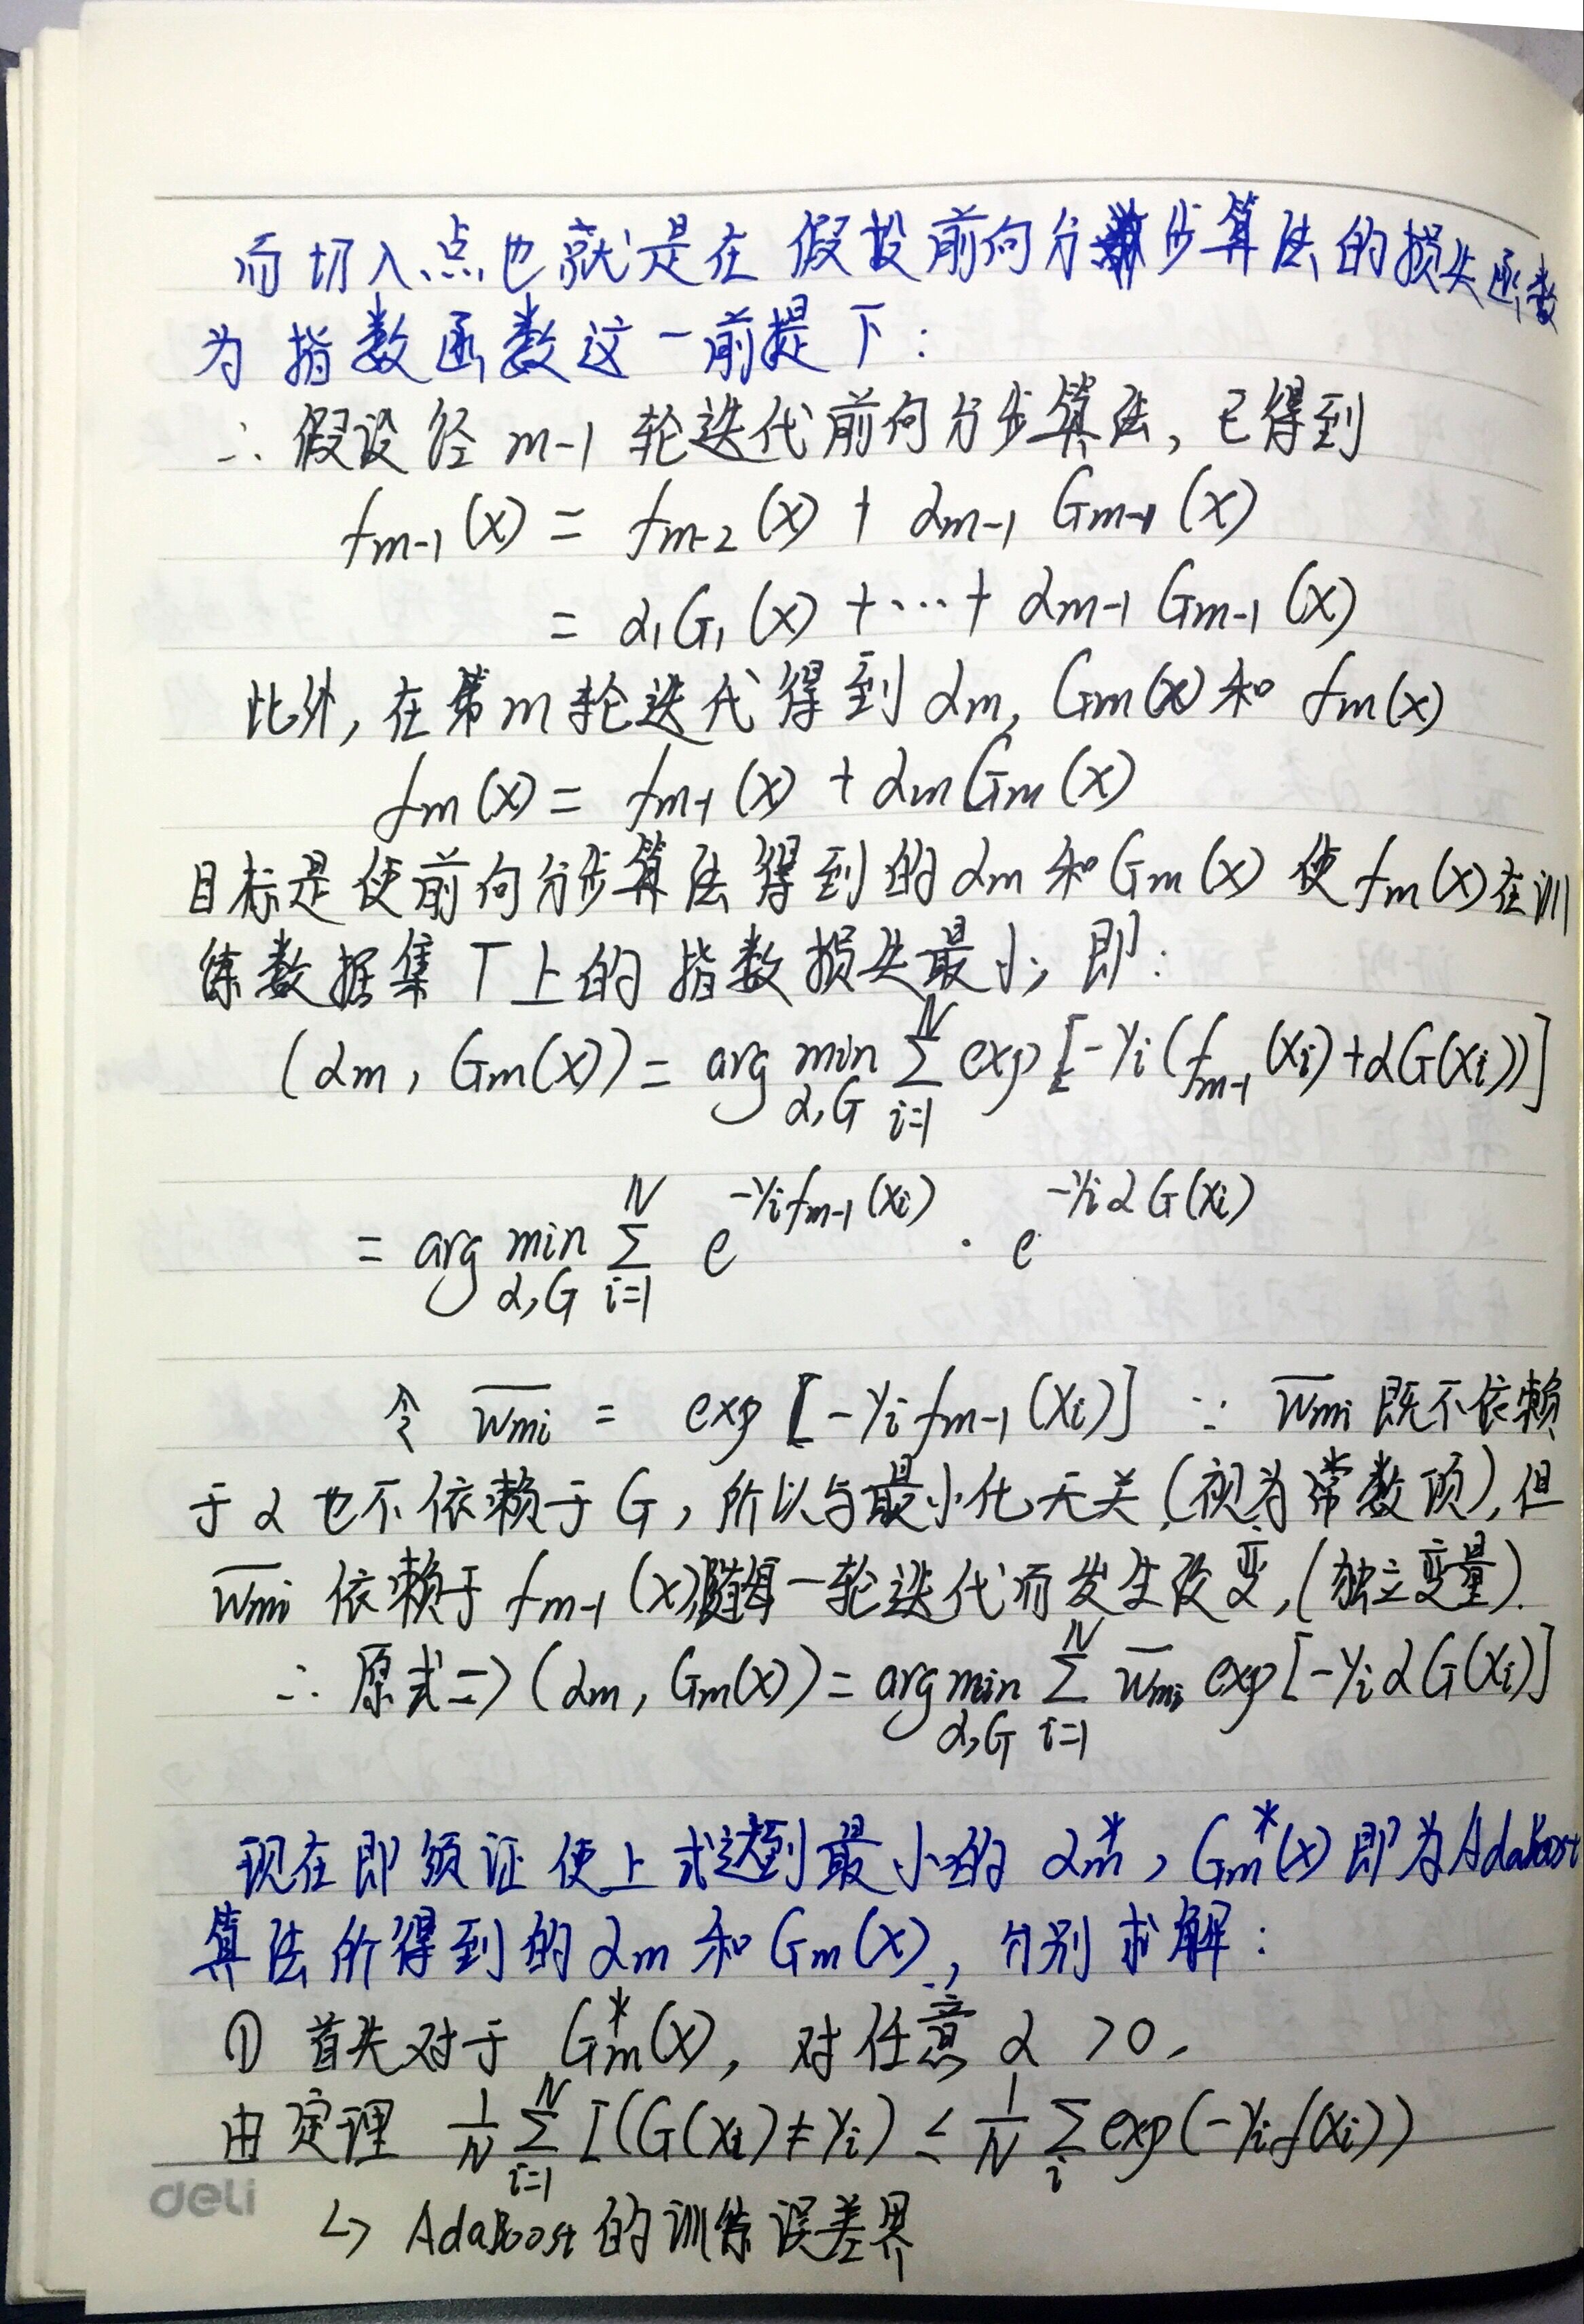 而切入点也就是在假设前向分步算法的损失函数
为指数函数这一前提下:
∴ 假设经 m-1 轮迭代前向分步算法, 已得到
fm-1(x) = fm-2(x) + αm-1 Gm-1(x)
= α1G1(x) + ··· + αm-1 Gm-1(x)
此外, 在第m轮迭代得到 αm, Gm(x) 和 fm(x)
fm(x) = fm-1(x) + αmGm(x)
目标是使前向分步算法得到的 αm 和 Gm(x) 使 fm(x) 在训
练数据集 T 上的指数损失最小, 即:
(αm, Gm(x)) = arg min_{α,G} Σ_{i=1}^{N} exp[-yi(fm-1(xi)+αG(xi))]
= arg min_{α,G} Σ_{i=1}^{N} e^{-yifm-1(xi)} · e^{-yiαG(xi)}
令 w̅mi = exp[-yifm-1(xi)] ∵ w̅mi 既不依赖
于 α 也不依赖于 G, 所以与最小化无关,(视为常数项), 但
w̅mi 依赖于 fm-1(x)随每一轮迭代而发生改变,(独立变量).
∴ 原式 => (αm, Gm(x)) = arg min_{α,G} Σ_{i=1}^{N} w̅mi exp[-yiαG(xi)]
现在即须证使上式达到最小的 αm*, Gm*(x) 即为AdaBoost
算法所得到的 αm 和 Gm(x), 分别求解:
① 首先对于 Gm*(x), 对任意 α > 0,
由定理 1/N Σ_{i=1}^{N} I(G(xi)≠yi) ≤ 1/N Σ_{i} exp(-yif(xi))
deli
↳ AdaBoost 的训练误差界